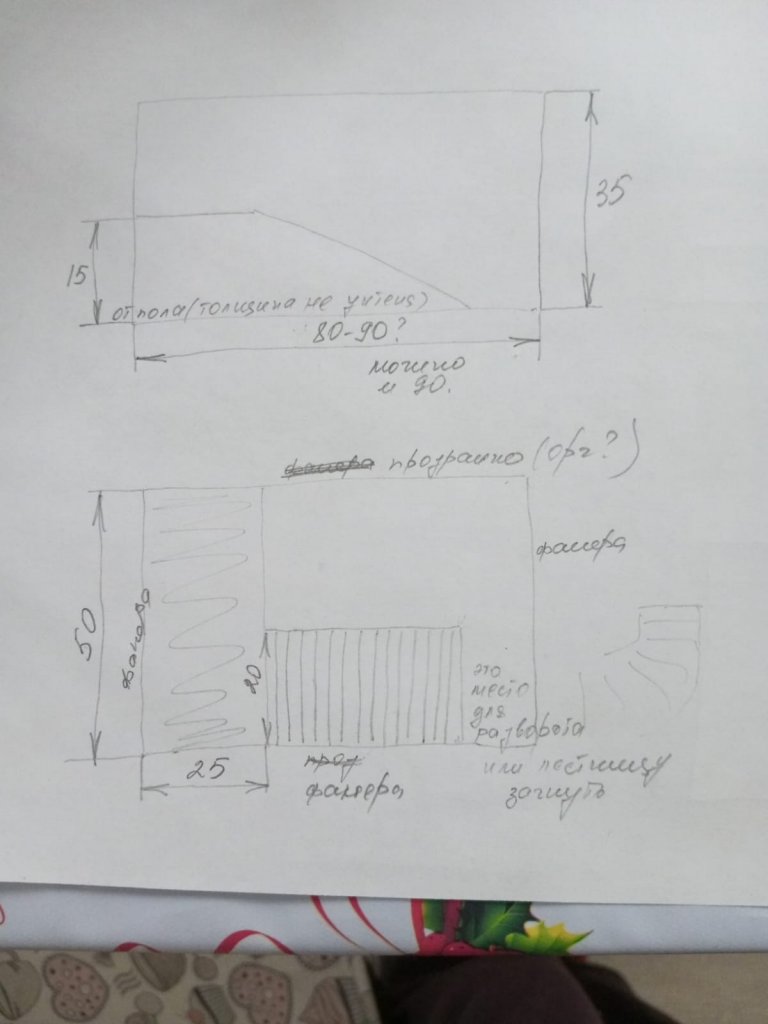 35
15
от пола (толщина не учтена)
80-90?
можно
и 90.
фанера прозрачно (орг?)
фанера
50
фанера
20
это
место
для
разворота
или лестницу
загнуть
25
проз
фанера